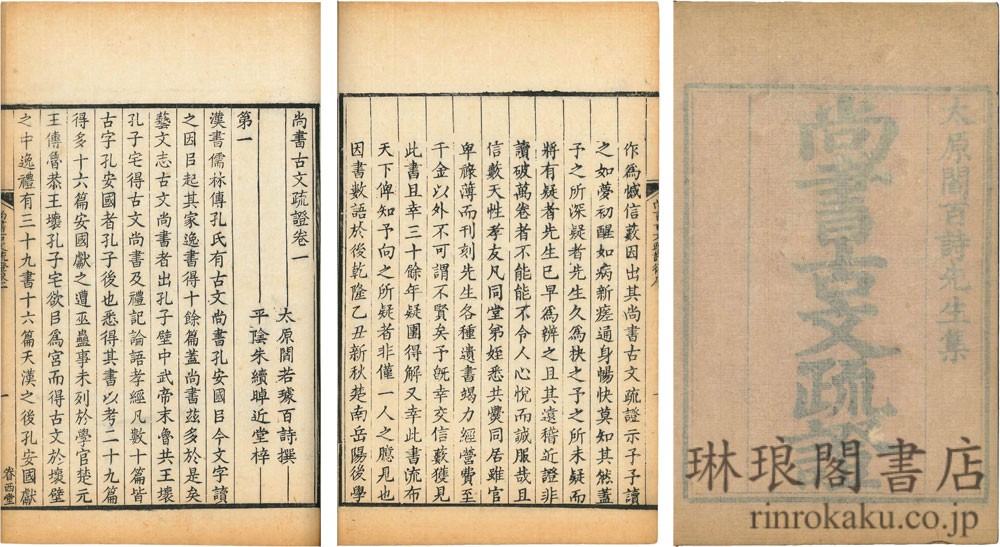 太原閻百詩先生集
尚書古文疏證
作爲憾信藪因出其尚書古文疏證示予予讀
之如夢初醒如病新瘥通身暢快莫知其然蓋
予之所深疑者先生久爲抉之予之所未疑而
將有疑者先生已早爲辨之且其遠稽近證非
讀破萬卷者不能能不令人心悅而誠服哉且
信藪天性孝友凡同堂弟姪悉共爨同居雖官
卑祿薄而刊刻先生各種遺書竭力經營費至
千金以外不可謂不賢矣予旣幸交信藪獲見
此書且幸三十餘年疑團得解又幸此書流布
天下俾知予向之所疑者非僅一人之臆見也
因書數語於後乾隆乙丑新秋楚南岳陽後學
尚書古文疏證卷一
太原閻若璩百詩撰
平陰朱續晫近堂梓
第一
漢書儒林傳孔氏有古文尚書孔安國㠯今文字讀
之因㠯起其家逸書得十餘篇蓋尚書茲多於是矣
藝文志古文尚書者出孔子壁中武帝末魯共王壞
孔子宅得古文尚書及禮記論語孝經凡數十篇皆
古字孔安國者孔子後也悉得其書以考二十九篇
得多十六篇安國獻之遭巫蠱事未列於學官楚元
王傳魯恭王壞孔子宅欲㠯爲宮而得古文於壞壁
之中逸禮有三十九書十六篇天漢之後孔安國獻
一
眷西堂
琳琅閣書店
rinrokaku.co.jp